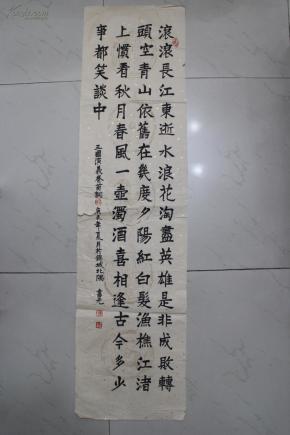 滾滾長江東逝水浪花淘盡英雄是非成敗轉
頭空青山依舊在幾度夕陽紅白髮漁樵江渚
上慣看秋月春風一壺濁酒喜相逢古今多少
事都笑談中
三國演義卷首詞
年夏月於錦城北隅